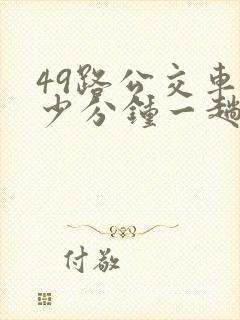 49路公交車
少分鍾一趟
付敬